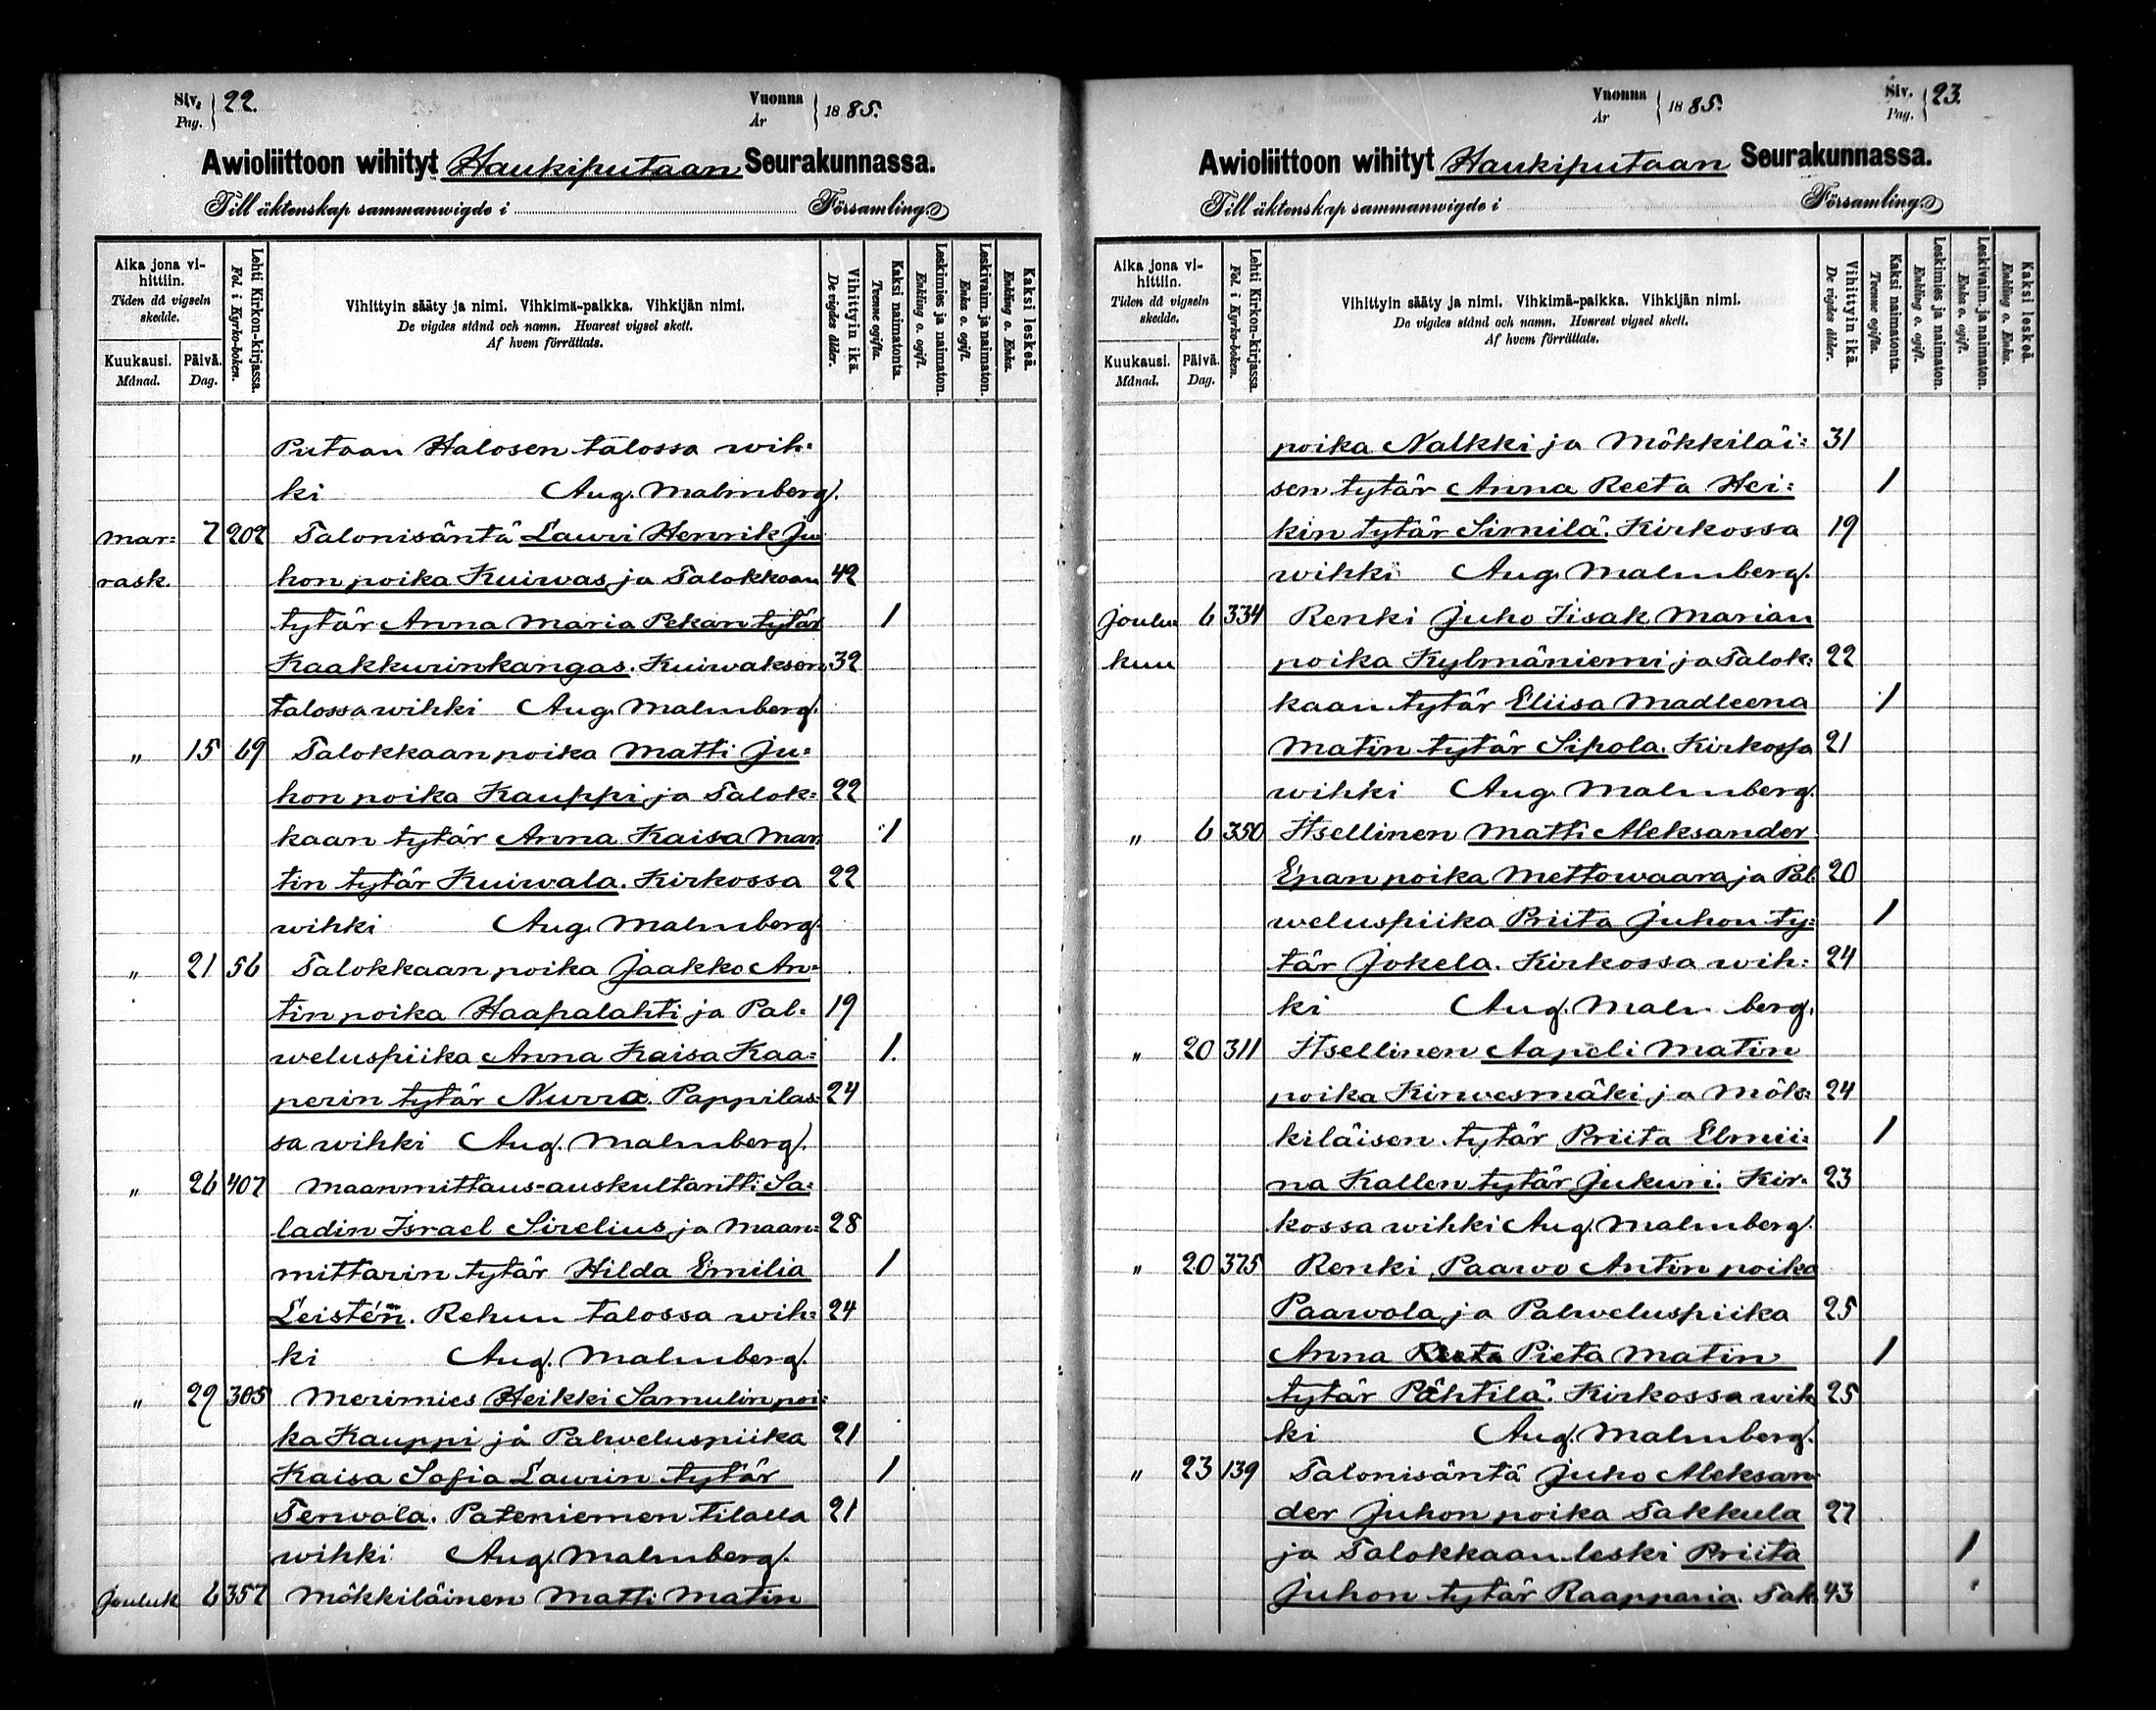 Siv. Pag. 22.
Vuonna År 1885.
Awioliittoon wihityt Haukiputaan Seurakunnassa.
Till äktenskap sammanwigde i Församling.
Aika jona vihittiin.
Tiden då vigseln skedde.
Kuukausi. Månad.
Päivä. Dag.
Lehti Kirkon-kirjassa.
Fol. i Kyrko-boken.
Vihittyin sääty ja nimi. Vihkimä-paikka. Vihkijän nimi.
De vigdes stånd och namn. Hvarest vigsel skett.
Af hvem förrättats.
Vihittyin ikä.
De vigdes ålder.
Kaksi naimatonta.
Tvenne ogifta.
Leskimies ja naimaton.
Enkling o. ogift.
Leskivaim. ja naimaton.
Enka o. ogift.
Kaksi leskeä.
Enkling o. Enka.
Putaan Halosen talossa wih=
ki Aug. Malmberg.
mar= 7 202 Talonisäntä Lauri Henrik Ju
rask. hon poika Kuiwas ja Talokkaan 42
tytär Anna Maria Pekan tytär 1
Kaakkurinkangas. Kuiwaksen 32
talossa wihki Aug. Malmberg.
" 15 69 Talokkaan poika Matti Ju=
hon poika Kauppi ja Talok= 22
kaan tytär Anna Kaisa Mar= 1
tin tytär Kuiwala. Kirkossa 22
wihki Aug. Malmberg.
" 21 56 Talokkaan poika Jaakko An=
tin poika Haapalahti ja Pal= 19
weluspiika Anna Kaisa Kaa= 1.
perin tytär Nurra. Pappilas= 24
sa wihki Aug. Malmberg.
" 26 407 Maanmittaus-auskultantti Sa=
ladin Israel Sirelius ja Maan= 28
mittarin tytär Hilda Emilia 1
Leistén. Rehun talossa wih= 24
ki Aug. Malmberg.
" 29 305 Merimies Heikki Samulin poi=
ka Kauppi ja Palweluspiika 21
Kaisa Sofia Laurin tytär 1
Terwola. Pateniemen tilalla 21
wihki Aug. Malmberg.
Jouluk 6 357 Mökkiläinen Matti Matin
Vuonna År 1885.
Siv. Pag. 23.
Awioliittoon wihityt Haukiputaan Seurakunnassa.
Till äktenskap sammanwigde i Församling.
Aika jona vihittiin.
Tiden då vigseln skedde.
Kuukausi. Månad.
Päivä. Dag.
Lehti Kirkon-kirjassa.
Fol. i Kyrko-boken.
Vihittyin sääty ja nimi. Vihkimä-paikka. Vihkijän nimi.
De vigdes stånd och namn. Hvarest vigsel skett.
Af hvem förrättats.
Vihittyin ikä.
De vigdes ålder.
Kaksi naimatonta.
Tvenne ogifta.
Leskimies ja naimaton.
Enkling o. ogift.
Leskivaim. ja naimaton.
Enka o. ogift.
Kaksi leskeä.
Enkling o. Enka.
poika Nalkki ja Mökkiläi= 31
sen tytär Anna Reeta Hei= 1
kin tytär Similä. Kirkossa 19
wihki Aug. Malmberg.
Joulu 6 334 Renki Juho Iisak Marian
kuu poika Kylmäniemi ja Talok= 22
kaan tytär Eliisa Madleena 1
Matin tytär Sipola. Kirkossa 21
wihki Aug. Malmberg.
" 6 350 Itsellinen Matti Aleksander
Epan poika Mettowaara ja Pal= 20
weluspiika Priita Juhon ty= 1
tär Jokela. Kirkossa wih= 24
ki Aug. Malmberg.
" 20 311 Itsellinen Aapeli Matin
poika Kirwesmäki ja Mök= 24
kiläisen tytär Priita Elmii= 1
na Kallen tytär Jukuri. Kir= 23
kossa wihki Aug. Malmberg.
" 20 375 Renki Paawo Antin poika
Paawola ja Palweluspiika 25
Anna Pieta Matin 1
tytär Pähtilä. Kirkossa wih 25
ki Aug. Malmberg.
" 23 139 Talonisäntä Juho Aleksan=
der Juhon poika Takkula 27
ja Talokkaan leski Priita 1
Juhon tytär Raappana. Tak= 43